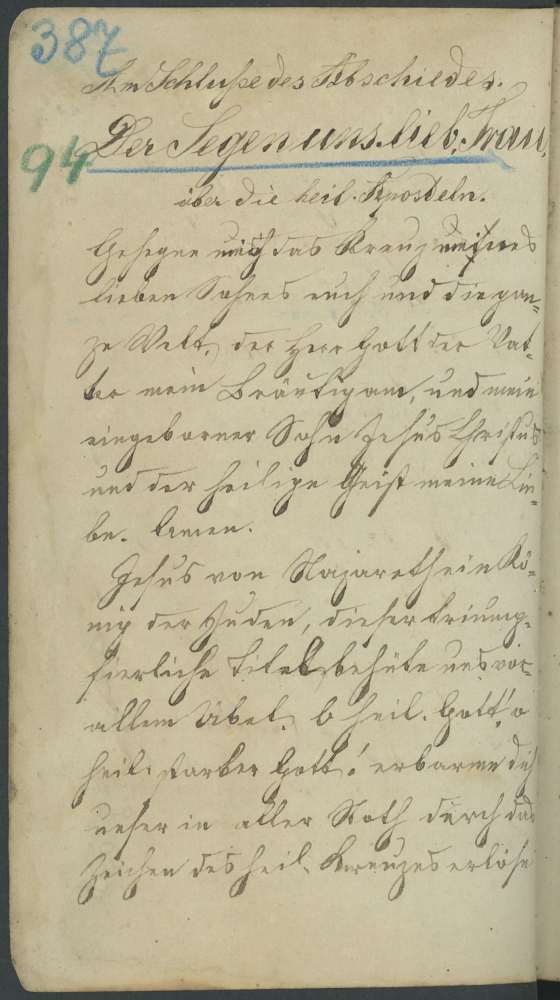 387
Am Schluße des Abschiedes.
94 Der Segen uns. lieb. Frau,
über die heil. Aposteln.
Gesegne mich das Kreuz meines
lieben Sohnes euch und die gan-
ze Welt, der Herr Gott der Vat-
ter mein Bräutigam, und mein
eingeborner Sohn Jesus Christus
und der heilige Geist meine Lie-
be. Amen.
Jesus von Nazareth ein Kö-
nig der Juden, dieser triump-
fierliche Titel behüte uns vor
allem Übel. O heil. Gott! o
heil. starker Gott! erbarme dich
unser in aller Noth durch das
Zeichen des heil. Kreuzes erlöse